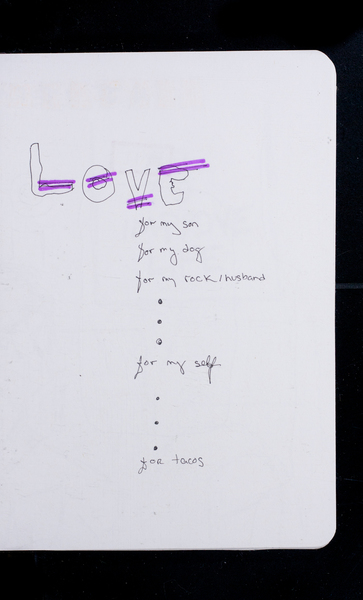 LOVE
for my son
for my dog
for my rock/husband
.
.
.
for my self
.
.
.
for tacos